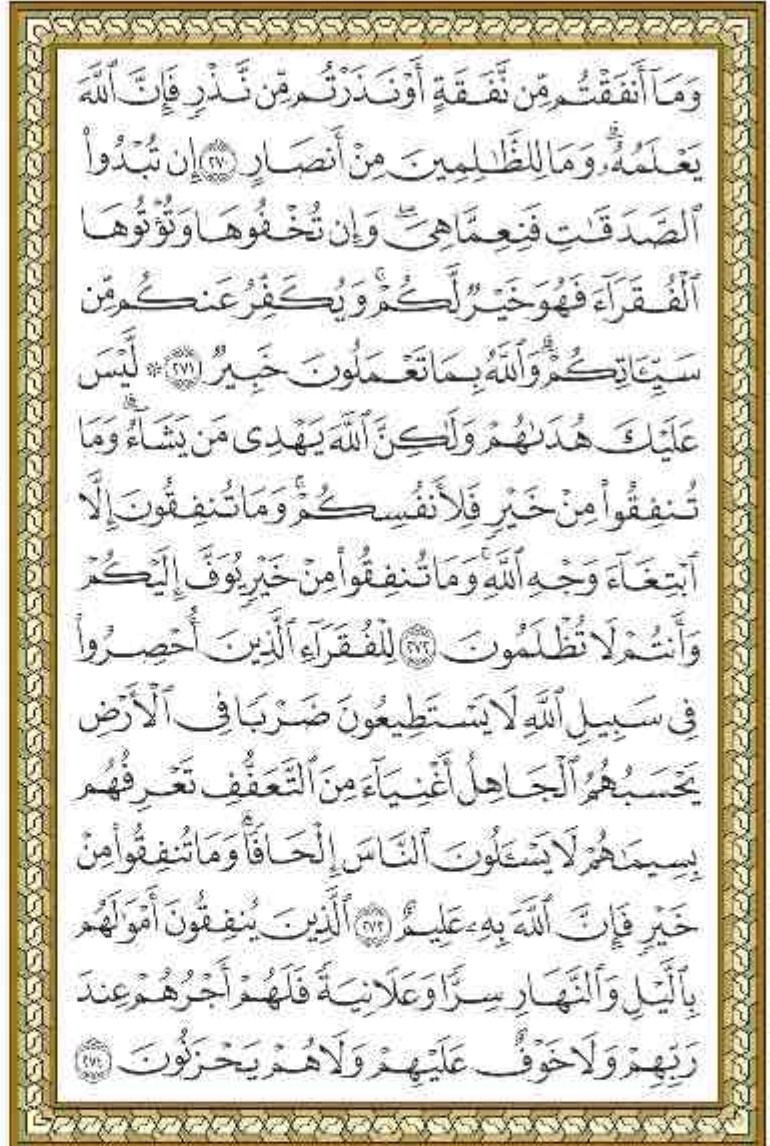 وَمَآ أَنفَقْتُم مِّن نَّفَقَةٍ أَوْ نَذَرْتُم مِّن نَّذْرٍ فَإِنَّ ٱللَّهَ
يَعْلَمُهُۥۗ وَمَا لِلظَّٰلِمِينَ مِنْ أَنصَارٍ ٢٧٠ إِن تُبْدُوا۟
ٱلصَّدَقَٰتِ فَنِعِمَّا هِىَۖ وَإِن تُخْفُوهَا وَتُؤْتُوهَا
ٱلْفُقَرَآءَ فَهُوَ خَيْرٌ لَّكُمْۚ وَيُكَفِّرُ عَنكُم مِّن
سَيِّـَٔاتِكُمْۗ وَٱللَّهُ بِمَا تَعْمَلُونَ خَبِيرٌ ٢٧١ ۞ لَّيْسَ
عَلَيْكَ هُدَىٰهُمْ وَلَٰكِنَّ ٱللَّهَ يَهْدِى مَن يَشَآءُۗ وَمَا
تُنفِقُوا۟ مِنْ خَيْرٍ فَلِأَنفُسِكُمْۚ وَمَا تُنفِقُونَ إِلَّا
ٱبْتِغَآءَ وَجْهِ ٱللَّهِۚ وَمَا تُنفِقُوا۟ مِنْ خَيْرٍ يُوَفَّ إِلَيْكُمْ
وَأَنتُمْ لَا تُظْلَمُونَ ٢٧٢ لِلْفُقَرَآءِ ٱلَّذِينَ أُحْصِرُوا۟
فِى سَبِيلِ ٱللَّهِ لَا يَسْتَطِيعُونَ ضَرْبًا فِى ٱلْأَرْضِ
يَحْسَبُهُمُ ٱلْجَاهِلُ أَغْنِيَآءَ مِنَ ٱلتَّعَفُّفِ تَعْرِفُهُم
بِسِيمَٰهُمْ لَا يَسْـَٔلُونَ ٱلنَّاسَ إِلْحَافًاۗ وَمَا تُنفِقُوا۟ مِنْ
خَيْرٍ فَإِنَّ ٱللَّهَ بِهِۦ عَلِيمٌ ٢٧٣ ٱلَّذِينَ يُنفِقُونَ أَمْوَٰلَهُم
بِٱلَّيْلِ وَٱلنَّهَارِ سِرًّا وَعَلَانِيَةً فَلَهُمْ أَجْرُهُمْ عِندَ
رَبِّهِمْ وَلَا خَوْفٌ عَلَيْهِمْ وَلَا هُمْ يَحْزَنُونَ ٢٧٤